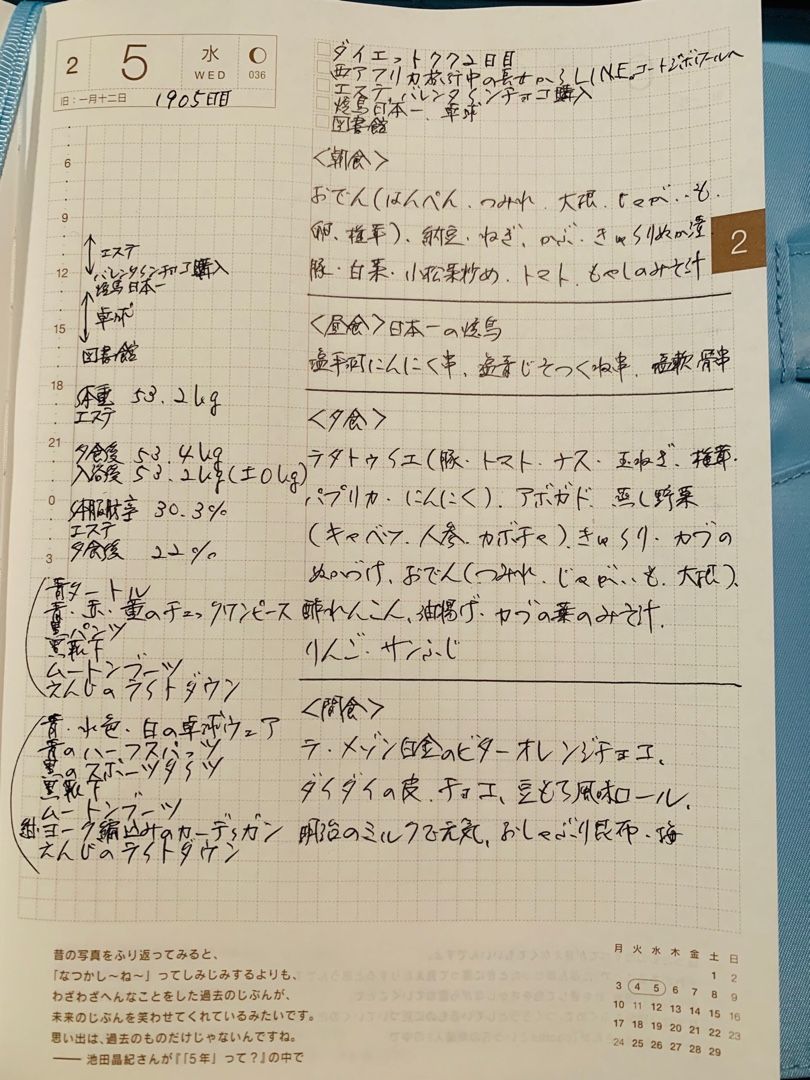 2
5
水
WED
036
旧:一月十二日
1905日目
ダイエット772日目
西アフリカ旅行中の長女からLINE。コートジボワールへ
エステ、バレンタインチョコ購入
焼鳥日本一、卓球
図書館
6
9
エステ
12
バレンタインチョコ購入
焼鳥日本一
卓球
15
図書館
18
体重 53.2kg
エステ
21
夕食後 53.4kg
入浴後 53.2kg(±0kg)
0
体脂肪率 30.3%
エステ
夕食後 22%
3
青タートル
青・赤・黄のチェックワンピース
黒パンツ
黒靴下
ムートンブーツ
えんじのライトダウン
青・水色・白の卓球ウェア
青のハーフスパッツ
黒のスポーツタイツ
黒靴下
ムートンブーツ
紺ヨーク編込みのカーディガン
えんじのライトダウン
<朝食>
おでん(はんぺん、つみれ、大根、じゃがいも、
卵、椎茸)、納豆・ねぎ、かぶ・きゅうりぬか漬
豚・白菜・小松菜炒め、トマト、もやしのみそ汁
2
<昼食>日本一の焼鳥
塩手羽にんにく串、塩青じそつくね串、塩軟骨串
<夕食>
ラタトゥイエ(豚・トマト・ナス・玉ねぎ、椎茸・
パプリカ・にんにく)、アボガド、蒸し野菜
(キャベツ、人参、カボチャ)、きゅうり・カブの
ぬかづけ、おでん(つみれ、じゃがいも、大根)、
酢れんこん、油揚げ・カブの葉のみそ汁、
りんご・サンふじ
<間食>
ラ・メゾン白金のビターオレンジチョコ、
ダイダイの皮、チョコ、豆もち風味ロール、
明治のミルクで元気、おしゃぶり昆布・梅
昔の写真をふり返ってみると、
「なつかし〜ね〜」ってしみじみするよりも、
わざわざへんなことをした過去のじぶんが、
未来のじぶんを笑わせてくれているみたいです。
思い出は、過去のものだけじゃないんですね。
── 池田晶紀さんが『「5年」って?』の中で
月 火 水 木 金 土 日
1 2
3 4 5 6 7 8 9
10 11 12 13 14 15 16
17 18 19 20 21 22 23
24 25 26 27 28 29